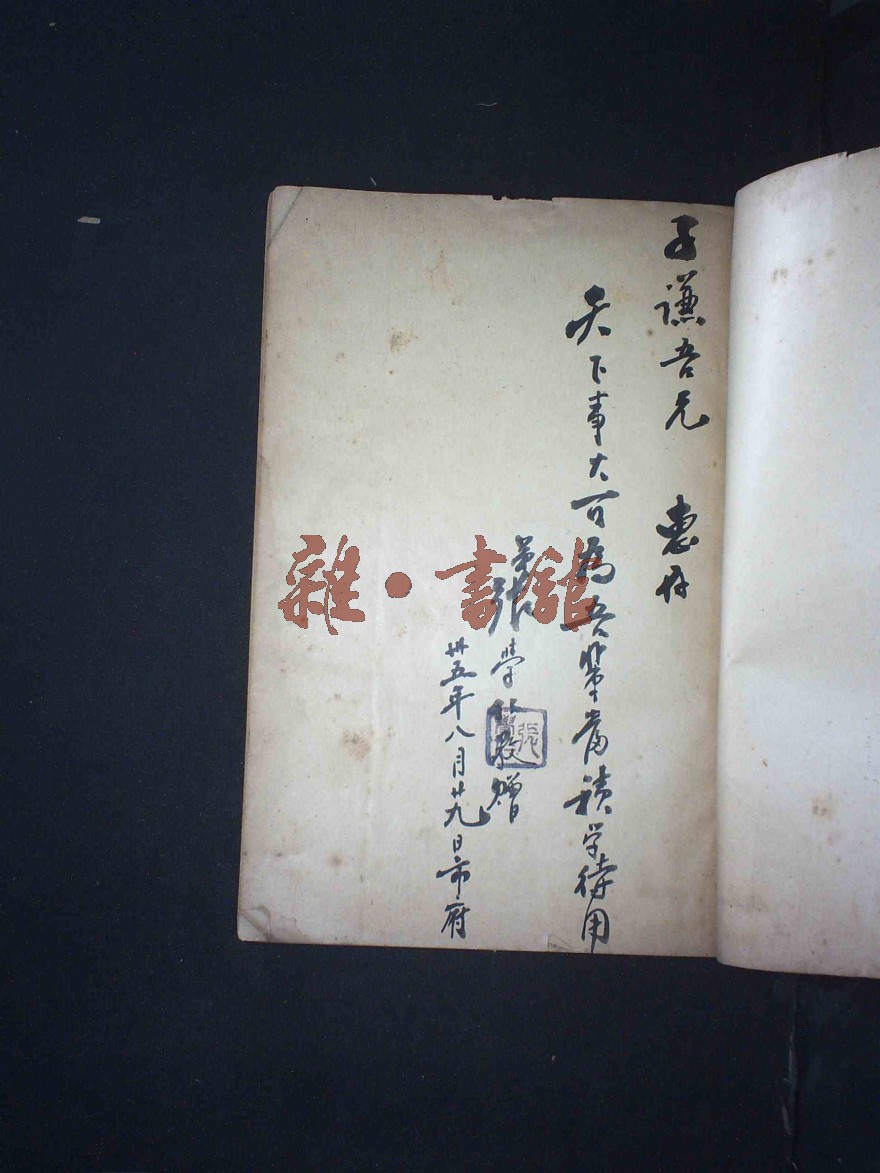 子謙吾兄 惠存
天下事大可為吾輩當積學待用
弟張學 敬贈
卅五年八月廿九日市府
雜·書館